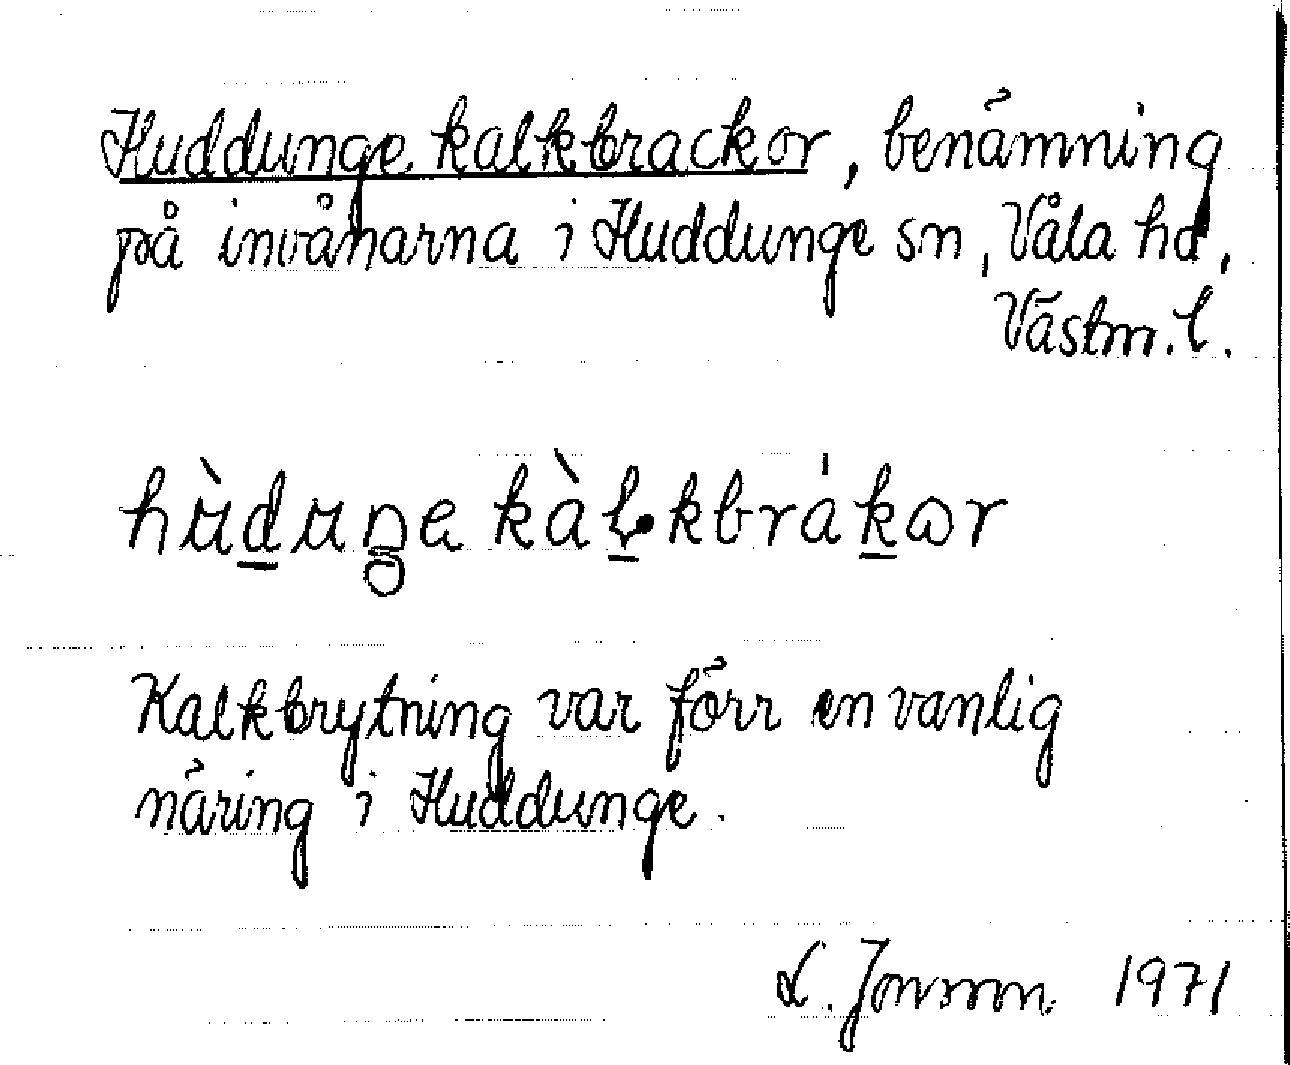 Huddunge kalkbrackor, benämning
på invånarna i Huddunge sn, Våla hd,
Västm. l.
hùduŋe kàḷkbrákor
Kalkbrytning var förr en vanlig
näring i Huddunge.
L. Jonsson. 1971